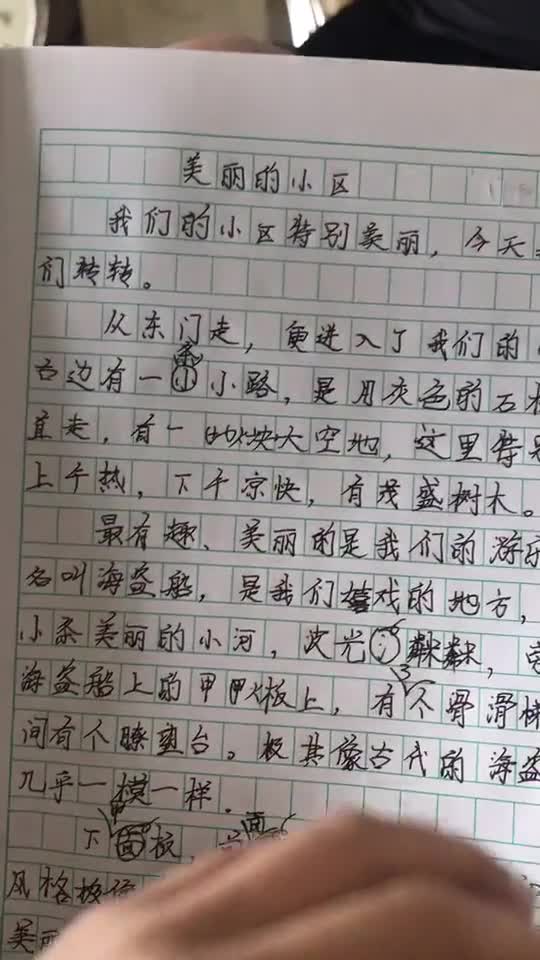 美丽的小区
我们的小区特别美丽，今天
们转转。
从东门走，便进入了我们的
右边有一条小路，是用灰色的石
直走，有一块大空地，这里特别
上午热，下午凉快，有茂盛树木。
最有趣、美丽的是我们的游乐
名叫海盗船，是我们嬉戏的地方，
小条美丽的小河，波光粼粼，
海盗船上的甲板上，有3个滑滑梯
间有个瞭望台。极其像古代的海盗
几乎一模一样.
下甲板，面
风格极
美丽